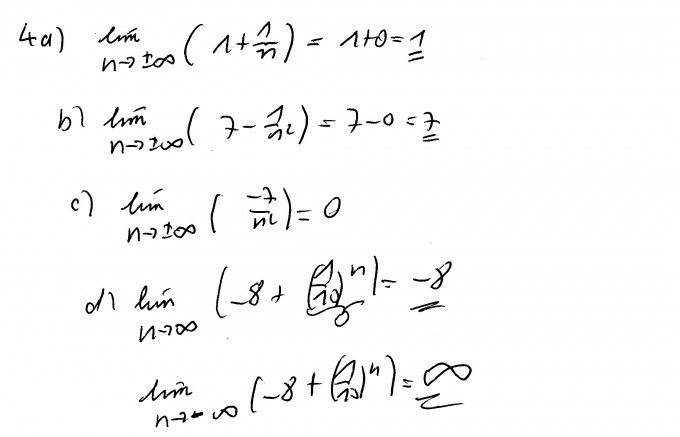 4a) lim n→±∞ (1+1/n) = 1+0=1
b) lim n→±∞ (7-1/n²) = 7-0=7
c) lim n→±∞ (-7/n²)=0
d) lim n→∞ (-8+(1/10)^n)=-8
0
lim n→-∞ (-8+(1/10)^n)=∞